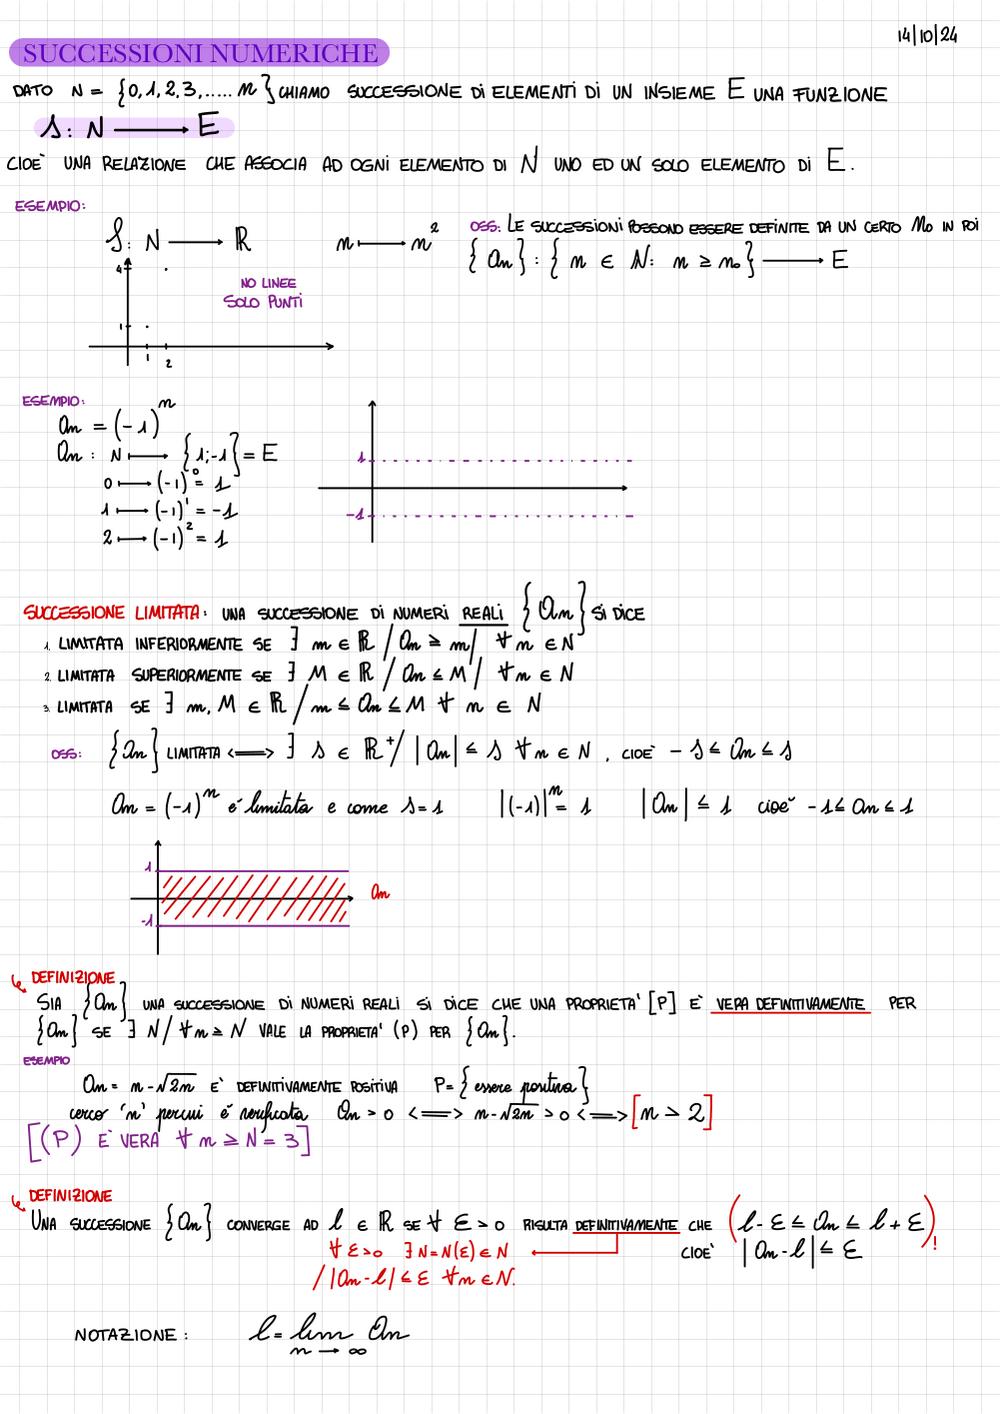 14/10/24
SUCCESSIONI NUMERICHE
DATO N = {0,1,2,3,..... n} CHIAMO SUCCESSIONE DI ELEMENTI DI UN INSIEME E UNA FUNZIONE
s: N ⟶ E
CIOE' UNA RELAZIONE CHE ASSOCIA AD OGNI ELEMENTO DI N UNO ED UN SOLO ELEMENTO DI E.
ESEMPIO:
f: N ⟶ ℝ n ⟼ n²
OSS: LE SUCCESSIONI POSSONO ESSERE DEFINITE DA UN CERTO n₀ IN POI
{an} : {n ∈ N: n ≥ n₀} ⟶ E
4
NO LINEE
SOLO PUNTI
1
1 2
ESEMPIO:
an = (-1)ⁿ
an : N ⟼ {1;-1} = E
0 ⟼ (-1)⁰ = 1
1 ⟼ (-1)¹ = -1
2 ⟼ (-1)² = 1
1
-1
SUCCESSIONE LIMITATA: UNA SUCCESSIONE DI NUMERI REALI {an} SI DICE
1. LIMITATA INFERIORMENTE SE ∃ m ∈ ℝ / an ≥ m/ ∀ n ∈ N
2. LIMITATA SUPERIORMENTE SE ∃ M ∈ ℝ / an ≤ M / ∀ n ∈ N
3. LIMITATA SE ∃ m, M ∈ ℝ / m ≤ an ≤ M ∀ n ∈ N
OSS: {an} LIMITATA <=> ∃ s ∈ ℝ⁺/ |an| ≤ s ∀ n ∈ N , CIOE' - s ≤ an ≤ s
an = (-1)ⁿ e' limitata e come s=1 |(-1)|ⁿ = 1 |an| ≤ 1 cioe' -1 ≤ an ≤ 1
1
an
-1
DEFINIZIONE
SIA {an} UNA SUCCESSIONE DI NUMERI REALI SI DICE CHE UNA PROPRIETA' [P] E' VERA DEFINITIVAMENTE PER
{an} SE ∃ N/ ∀ n ≥ N VALE LA PROPRIETA' (P) PER {an}.
ESEMPIO
an = n-√2n E' DEFINITIVAMENTE POSITIVA P= {essere positiva}
cerco 'n' percui é verificata an > 0 <=> n-√2n > 0 <=> [n > 2]
[(P) E' VERA ∀ n ≥ N = 3]
DEFINIZIONE
UNA SUCCESSIONE {an} CONVERGE AD l ∈ ℝ SE ∀ ε > 0 RISULTA DEFINITIVAMENTE CHE (l - ε ≤ an ≤ l + ε)!
∀ ε>0 ∃ N = N(ε) ∈ N CIOE' |an - l| ≤ ε
/ |an - l| ≤ ε ∀ n ∈ N.
NOTAZIONE : l = lim an
n → ∞